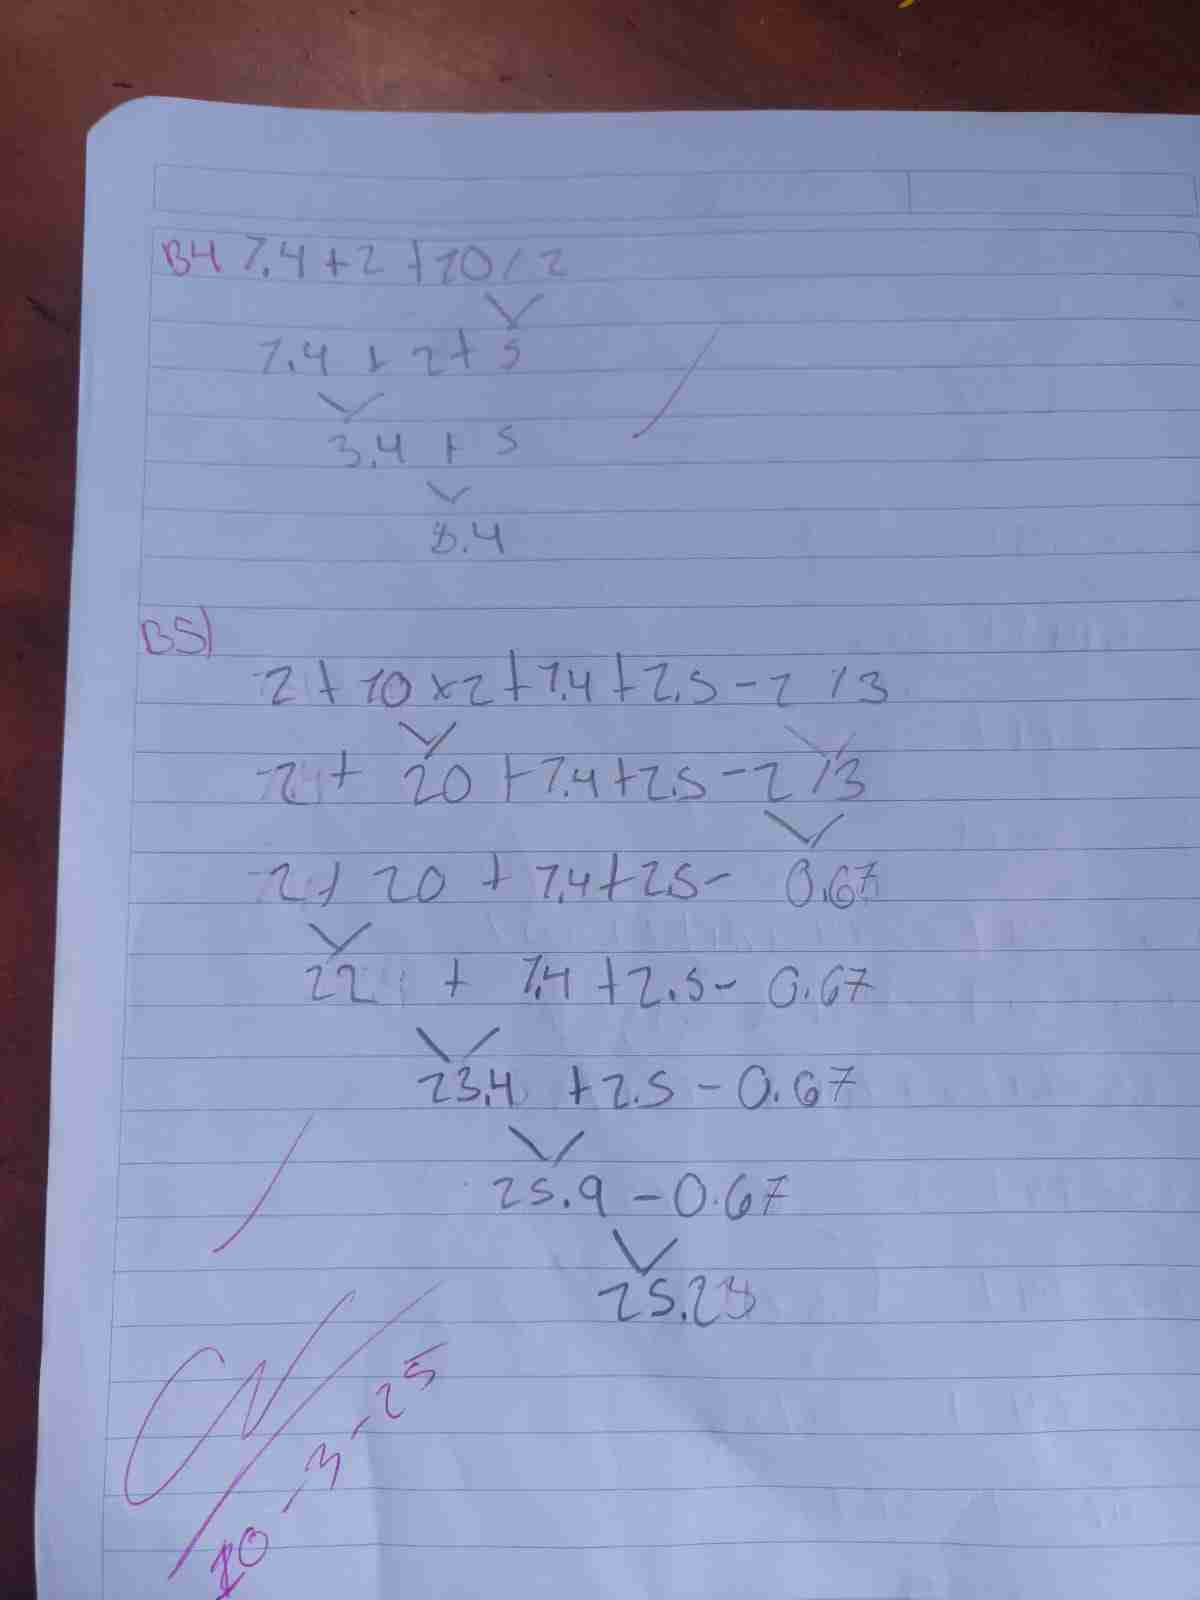 B4 1.4 + 2 + 10 / 2
1.4 + 2 + 5
3.4 + 5
8.4
B5)
2 + 10 x 2 + 1.4 + 2.5 - 2 / 3
2 + 20 + 1.4 + 2.5 - 2 / 3
2 + 20 + 1.4 + 2.5 - 0.67
22 + 1.4 + 2.5 - 0.67
23.4 + 2.5 - 0.67
25.9 - 0.67
25.23
10, 3, 25